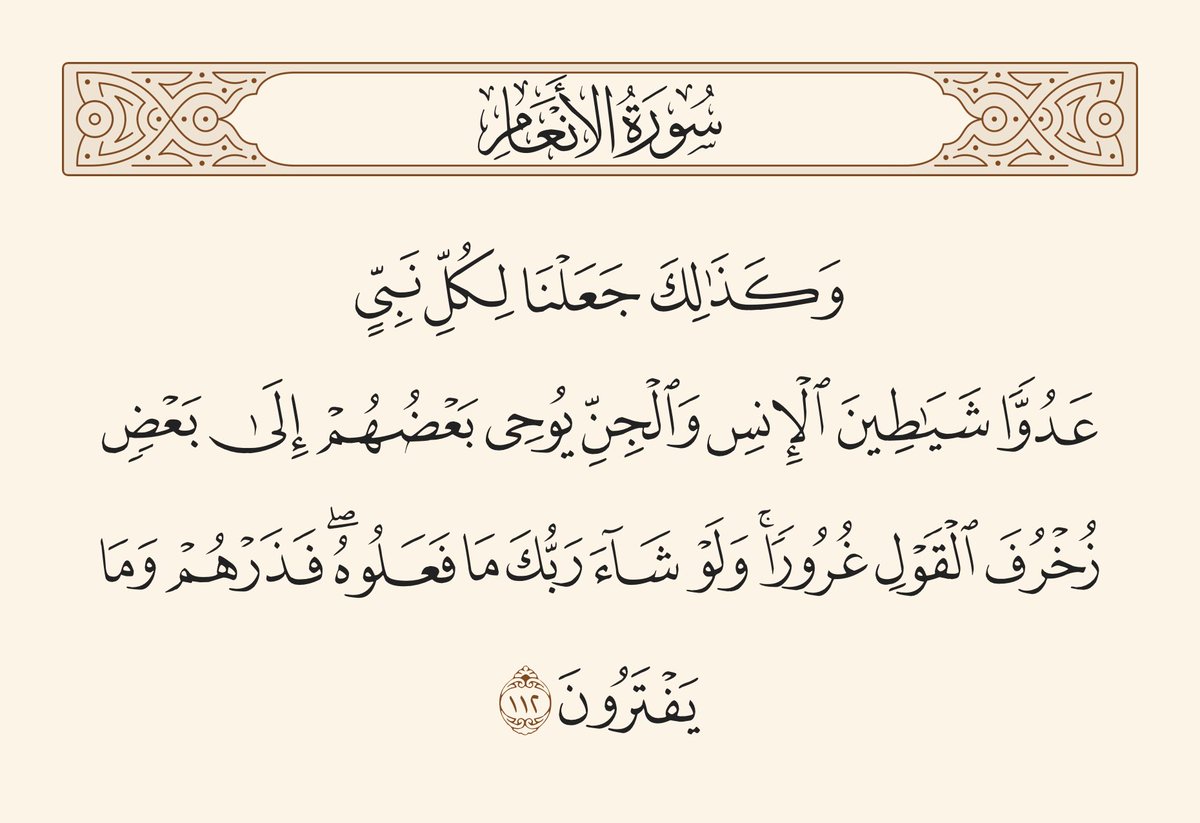 سُورَةُ الأَنْعَامِ
وَكَذَٰلِكَ جَعَلۡنَا لِكُلِّ نَبِيٍّ
عَدُوّٗا شَيَٰطِينَ ٱلۡإِنسِ وَٱلۡجِنِّ يُوحِي بَعۡضُهُمۡ إِلَىٰ بَعۡضٖ
زُخۡرُفَ ٱلۡقَوۡلِ غُرُورٗاۚ وَلَوۡ شَآءَ رَبُّكَ مَا فَعَلُوهُۖ فَذَرۡهُمۡ وَمَا
يَفۡتَرُونَ ١١٢